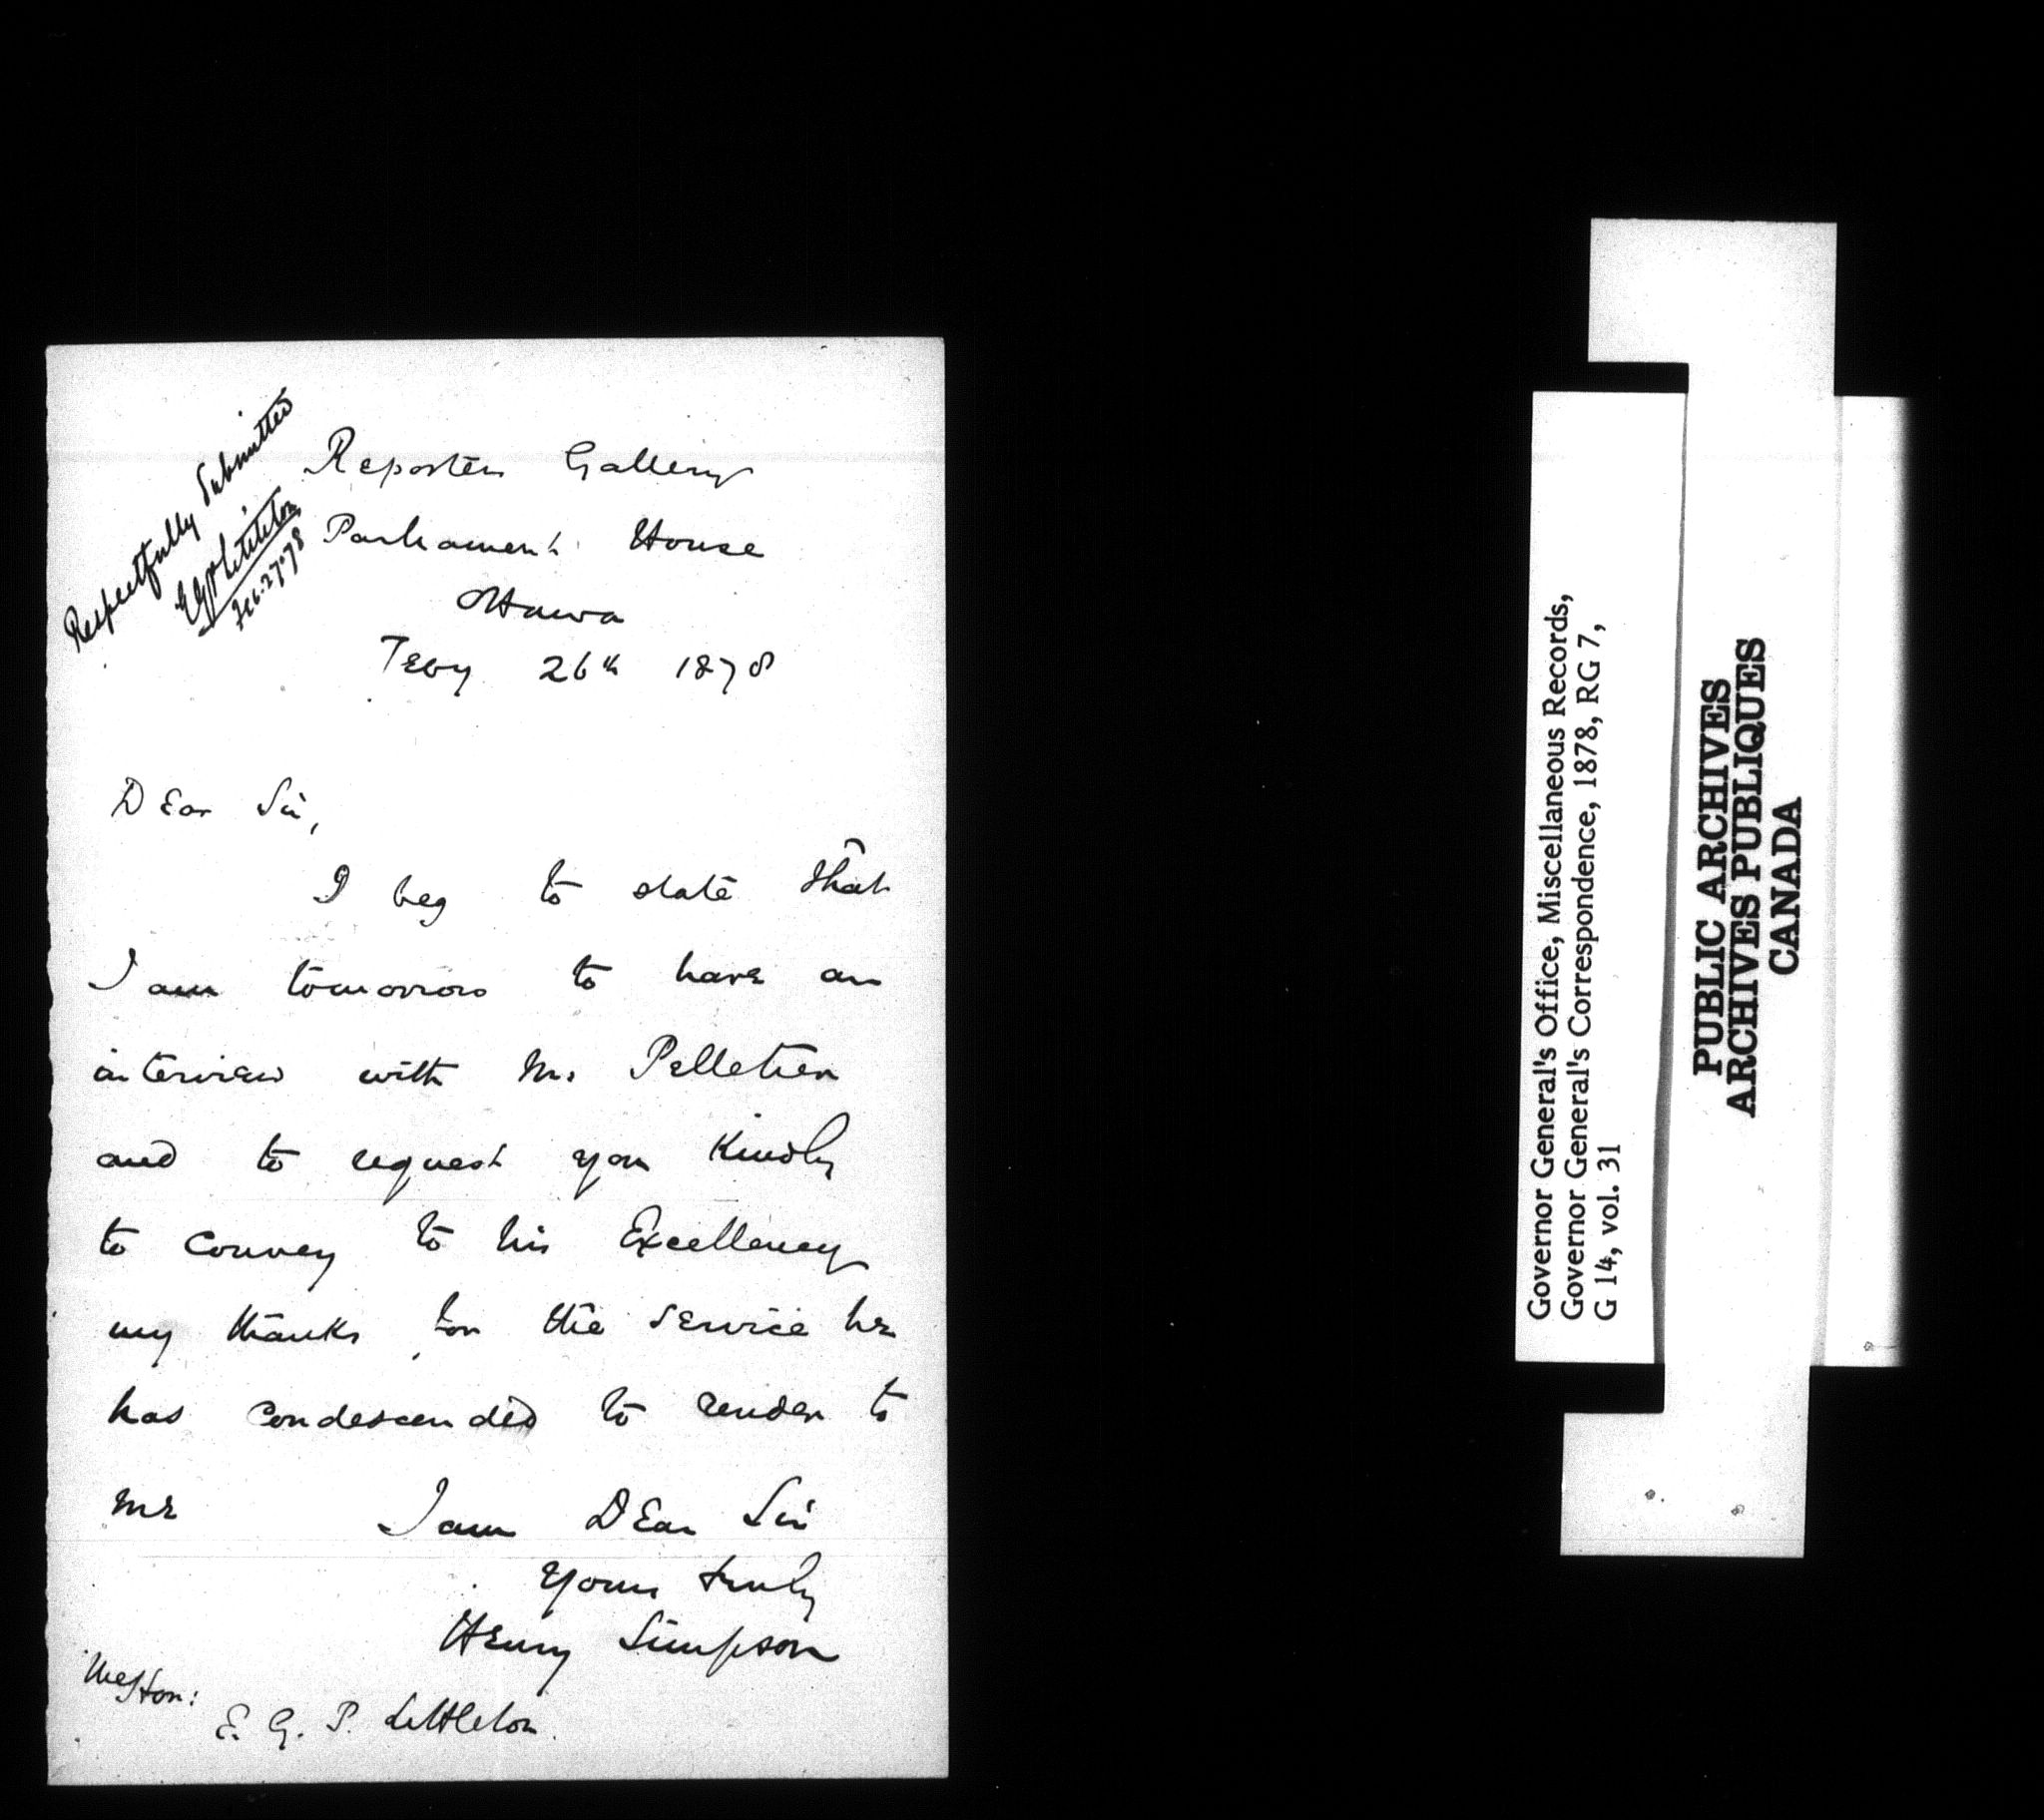 Respectfully Submitted
EGPLittleton
Feb. 27. 78
Reporters Gallery
Parliament House
Ottawa
Feby 26th 1878
Dear Sir,
I beg to state that
I am tomorrow to have an
interview with Mr Pelletier
and to request you Kindly
to convey to his Excellency
my thanks for the service he
has condescended to render to
me
I am Dear Sir
Yours truly
Henry Simpson
The Hon:
E. G. P. Littleton.
Governor General's Office, Miscellaneous Records,
Governor General's Correspondence, 1878, RG 7,
G 14, vol. 31
PUBLIC ARCHIVES
ARCHIVES PUBLIQUES
CANADA